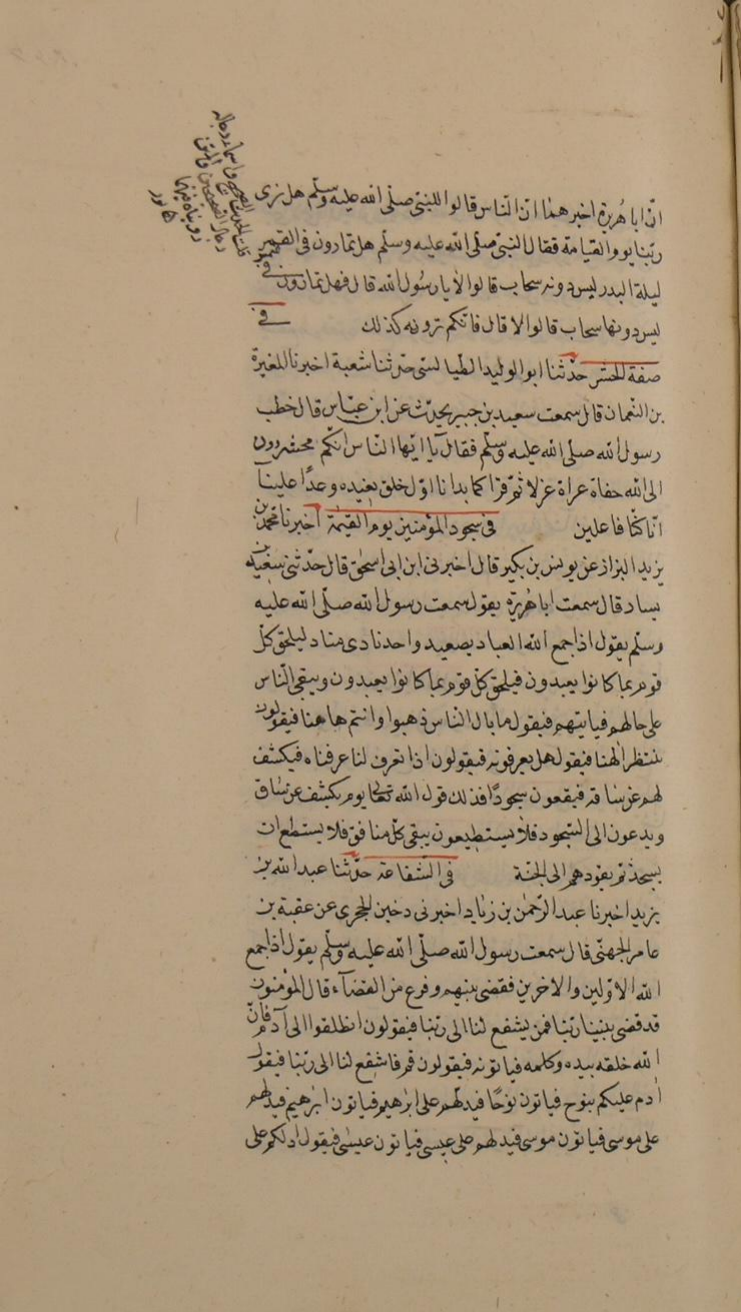 انّ ابا هُريرة اخبرهما انّ النّاس قالوا للنبيّ صلّى الله عليه وسلّم هل نرى
ربّنا يوم القيامة فقال النبيّ صلّى الله عليه وسلم هل تمارون فى القمر
ليلة البدر ليس دونه سحاب قالوا لا يا رسُول الله قال فهل تمارون فى
ليس دونها سحاب قالوا لا قال فانكم ترونه كذلك فى
صفة الحشر حدّثنا ابو الوليد الطيالسى حدثنا شعبة اخبرنا المغيرة
بن النّعمان قال سمعت سعيد بن جبير يحدّث عن ابن عبّاس قال خطب
رسول الله صلى الله عليه وسلّم فقال يا ايّها النّاس انّكم محشورون
الى الله حفاة عراة غرلا ثمّ قرا كما بدانا اوّل خلق نعيده وعدًا علينا
انّا كنّا فاعلين فى سجود المؤمنين يوم القيمة اخبرنا محمّد بن
يزيد البزاز عن يونس بن بكير قال اخبرنى ابن ابى اسحق قال حدّثنى سعيد بن
يسار قال سمعت ابا هُريرة يقول سمعت رسول الله صلّى الله عليه
وسلّم يقول اذا جمع الله العباد بصعيد واحد نادى مناد ليلحق كل
قوم بما كانوا يعبدون فيلحق كل قوم بما كانوا يعبدون ويبقى النّاس
على حالهم فياتيهم فيقول ما بال النّاس ذهبوا وانتم هاهنا فيقولون
ننتظر الهنا فيقول هل تعرفونه فيقولون اذا تعرف لنا عرفناه فيكشف
لهم عن ساقه فيقعون سجودًا فذلك قول الله تعالى يوم يكشف عن ساق
ويدعون الى السّجود فلا يستطيعون يبقى كلّ منافق فلا يستطع ان
يسجد ثم يقودهم الى الجنّة فى الشّفاعة حدّثنا عبد الله بن
يزيد اخبرنا عبد الرّحمن بن زياد اخبرنى دخين الحجرى عن عقبة بن
عامر الجهنّى قال سمعت رسول الله صلّى الله عليه وسلّم يقول اذا جمع
الله الاوّلين والاخرين فقضى بينهم وفرغ من القضآء قال المؤمنون
قد قضى بيننا ربّنا فمن يشفع لنا الى ربّنا فيقولون انطلقوا الى آدم فانّ
الله خلقه بيده وكلمه فياتونه فيقولون قم فاشفع لنا الى ربّنا فيقول
ادم عليكم بنوح فياتون نوحًا فيدلّهم على ابرهيم فياتون ابرهيم فيدلهم
على موسى فياتون موسى فيدلهم على عيسى فياتون عيسى فيقول ادلكم على